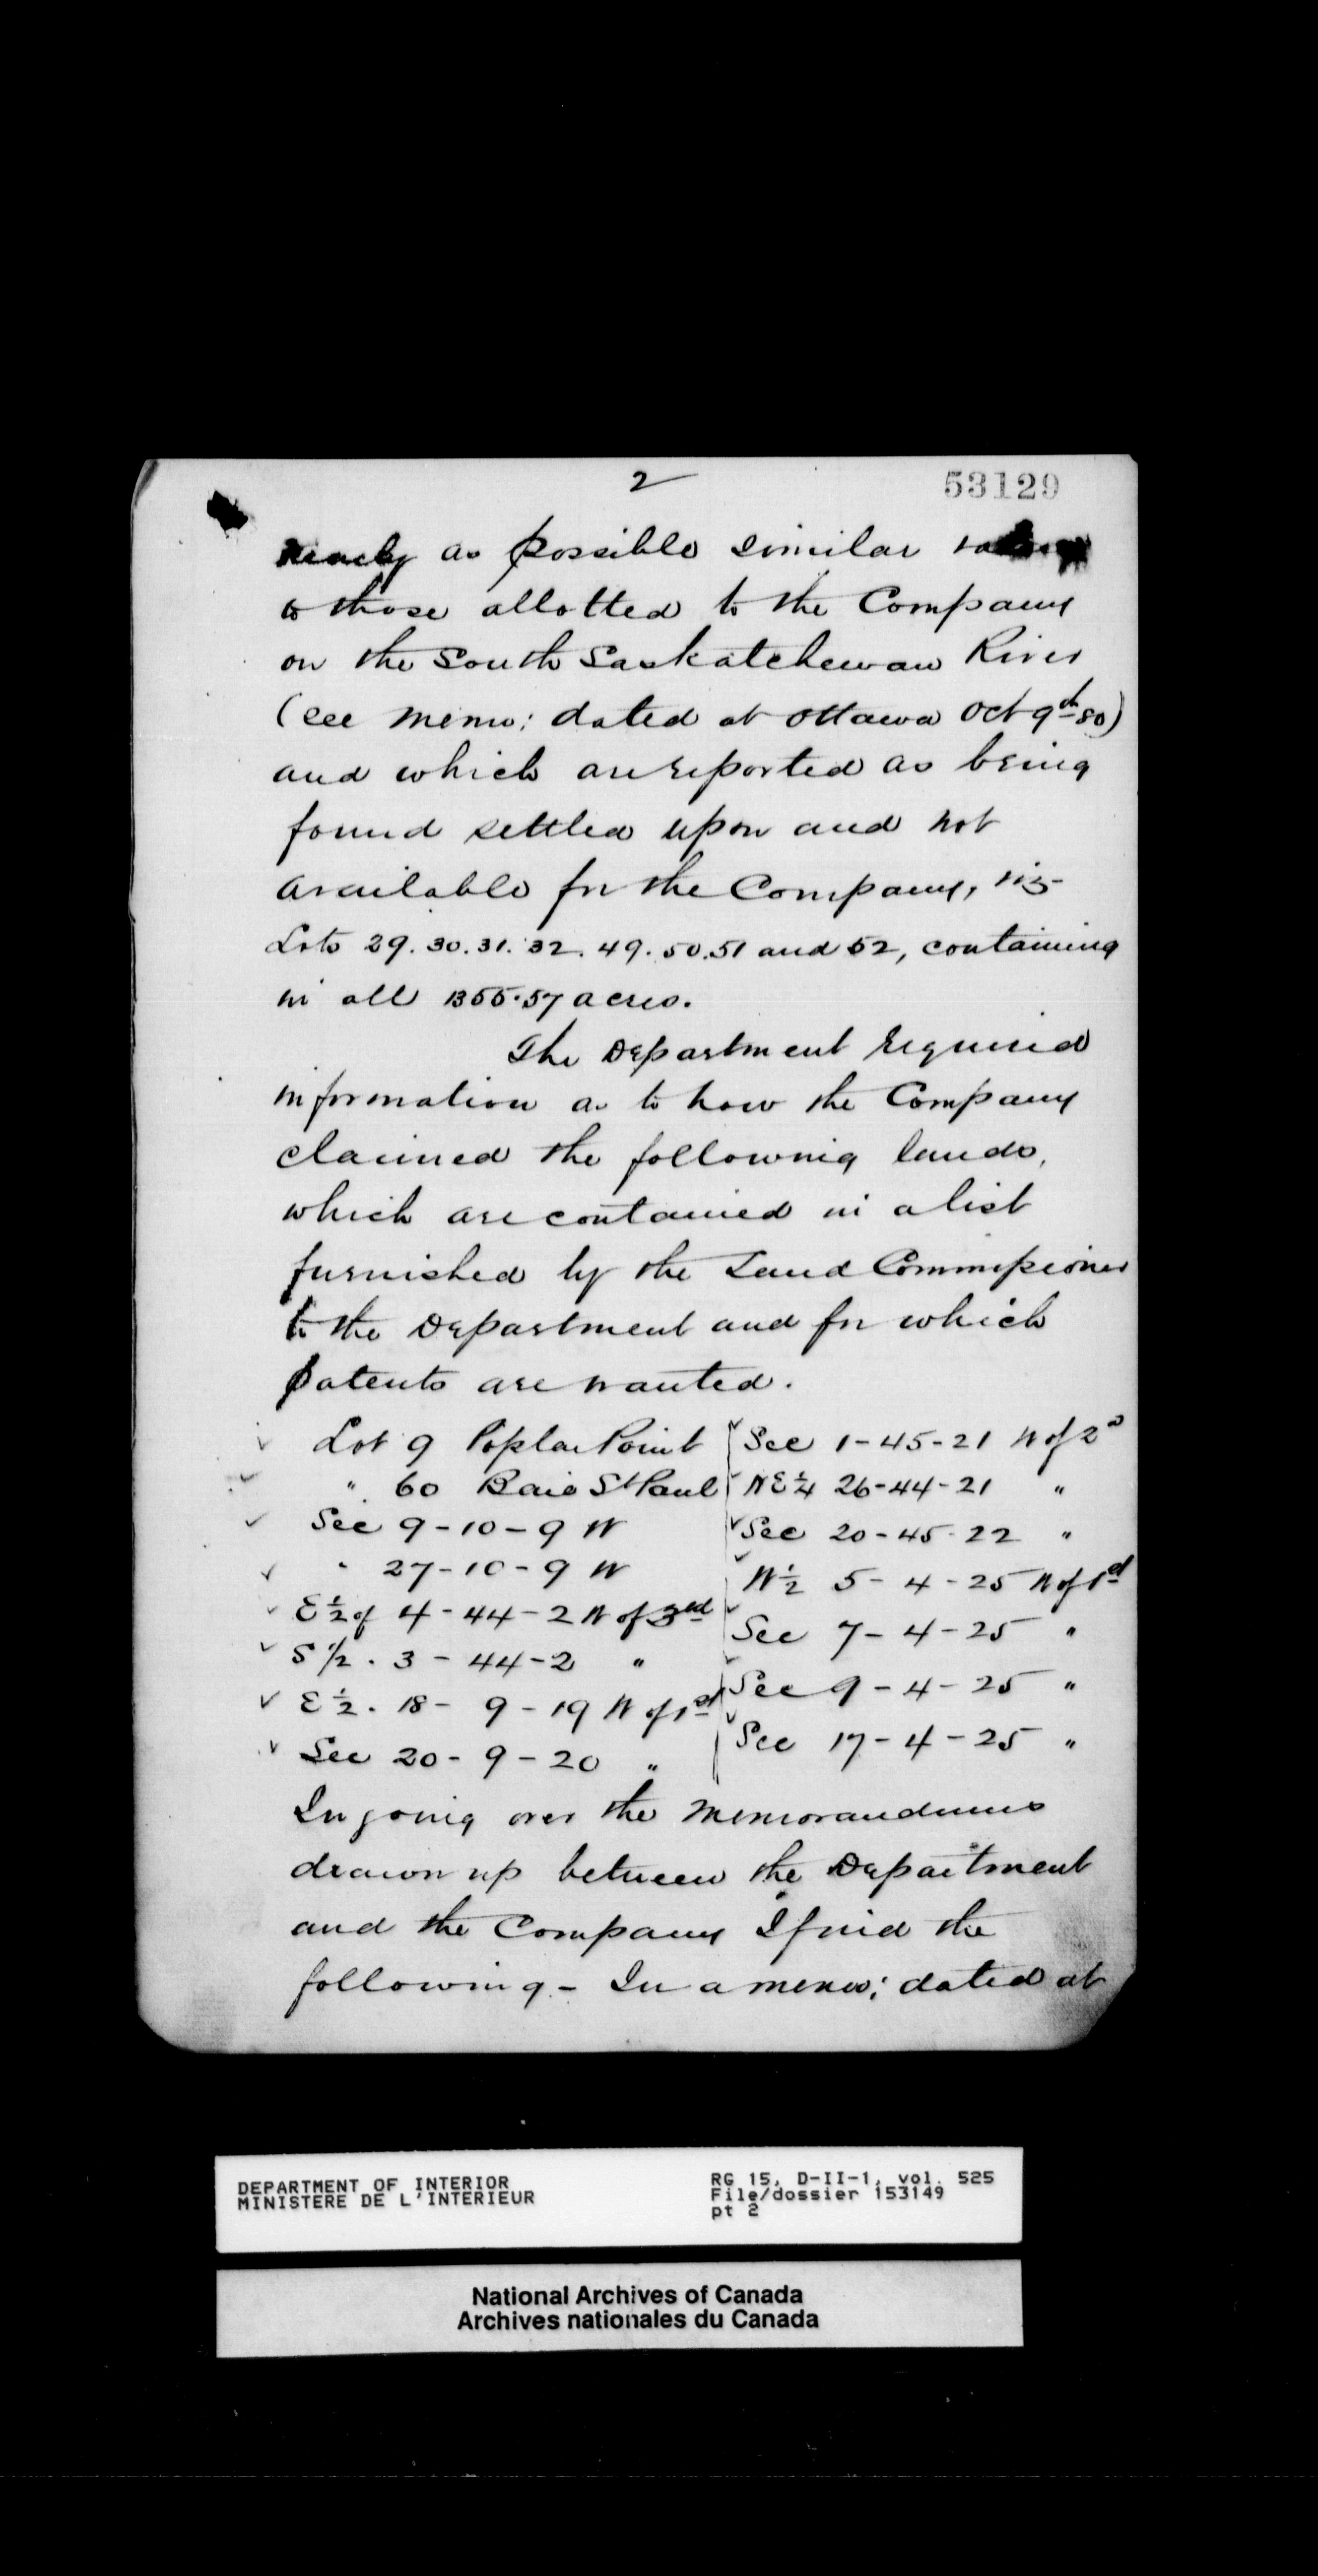 2
53129
nearly as possible similar
to those allotted to the Company
on the South Saskatchewan River
(see memo: dated at Ottawa Oct 9th 80)
and which are reported as being
found settled upon and not
available for the Company, viz-
Lots 29. 30. 31. 32. 49. 50. 51 and 52, containing
in all 1355.57 acres.
The Department required
information as to how the Company
claimed the following lands,
which are contained in a list
furnished by the Land Commissioner
to the Department and for which
patents are wanted.
✓ Lot 9 Poplar Point
✓ " 60 Baie St Paul
✓ Sec 9-10-9 W
✓ " 27-10-9 W
✓ E ½ of 4-44-2 W of 3rd
✓ S 1/2 . 3-44-2 "
✓ E ½ . 18-9-19 W of 1st
✓ Sec 20-9-20 "
✓ Sec 1-45-21 W of 2d
✓ NE ¼ 26-44-21 "
✓ Sec 20-45-22 "
✓ W ½ 5-4-25 W of 1st
✓ Sec 7-4-25 "
✓ Sec 9-4-25 "
✓ Sec 17-4-25 "
In going over the memorandums
drawn up between the Department
and the Company I find the
following - In a memo: dated at
DEPARTMENT OF INTERIOR
MINISTERE DE L'INTERIEUR
RG 15, D-II-1, vol. 525
File/dossier 153149
pt 2
National Archives of Canada
Archives nationales du Canada